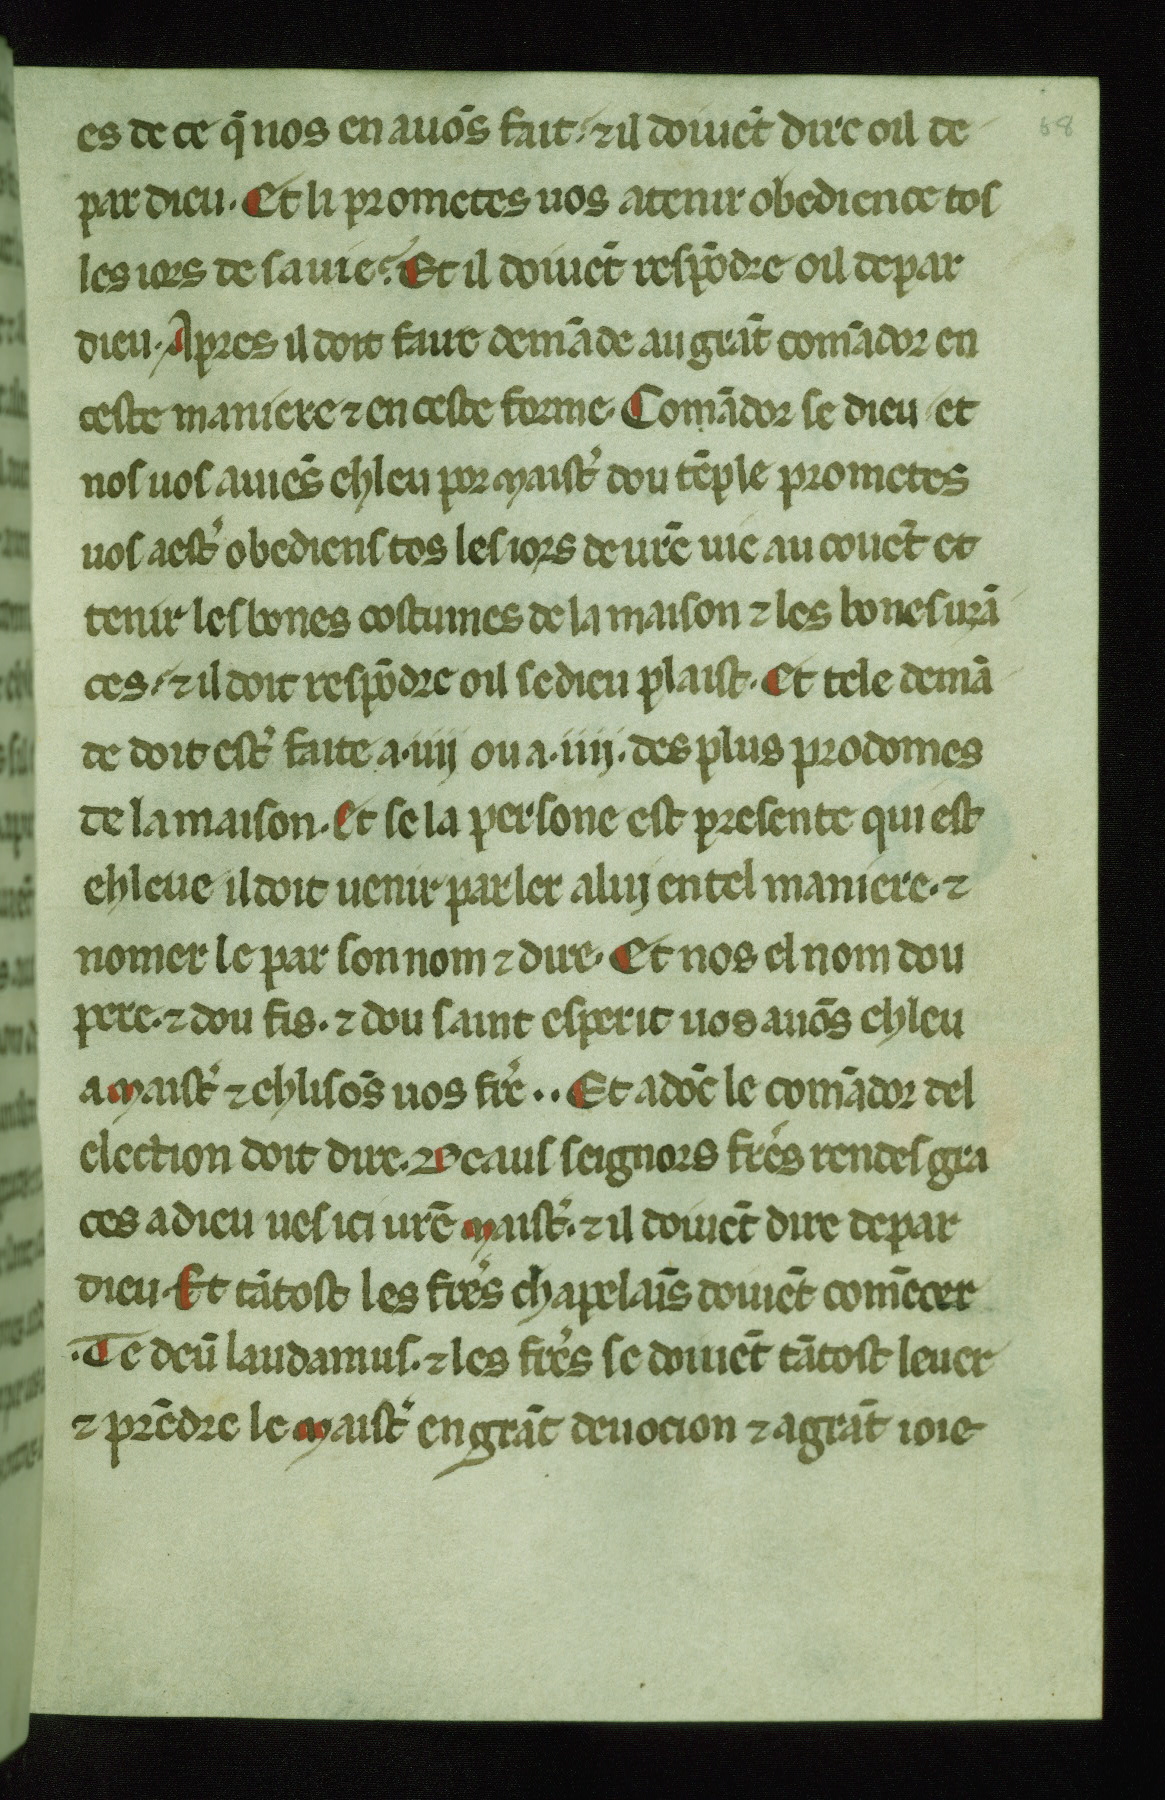 68
es de ce q̃ nos en auõs fait ⁊ il doiuẽt dire oil de
par dieu. Et li prometes uos a tenir obedience tos
les iors de sa uie. Et il doiuẽt respõdre oil de par
dieu. Apres il doit faire demãde au grãt comãdor en
ceste maniere ⁊ en ceste forme. Comãdor se dieu et
nos uos auiẽs ehleu por maist᾿ dou tẽple prometes
uos a est᾿ obediens tos les iors de ur̃e uie au couẽt et
tenir les bones costumes de la maison ⁊ les bones urã
ces. ⁊ il doit respõdre oil se dieu plaist. Et tele demã
de doit est᾿ faite a .iiij ou a .iiij. des plus prodomes
de la maison. Et se la persone est presente qui est
ehleue il doit uenir parler a luj en tel maniere. ⁊
nomer le par son nom ⁊ dire. Et nos el nom dou
pere. ⁊ dou fis. ⁊ dou saint esperit uos auõs ehleu
a maist᾿ ⁊ ehlisõs uos fr᾿e .. Et adõc le comãdor del
election doit dire. Beaus seignors fr᾿es rendes gra
ces a dieu ues ici ur̃e maist᾿. ⁊ il doiuẽt dire de par
dieu. Et tãtost les fr᾿es chapelaĩs doiuẽt comẽcer
.Te deũ laudamus. ⁊ les fr᾿es se doiuẽt tãtost leuer
⁊ prẽdre le maist᾿ en grãt deuocion ⁊ a grãt ioie